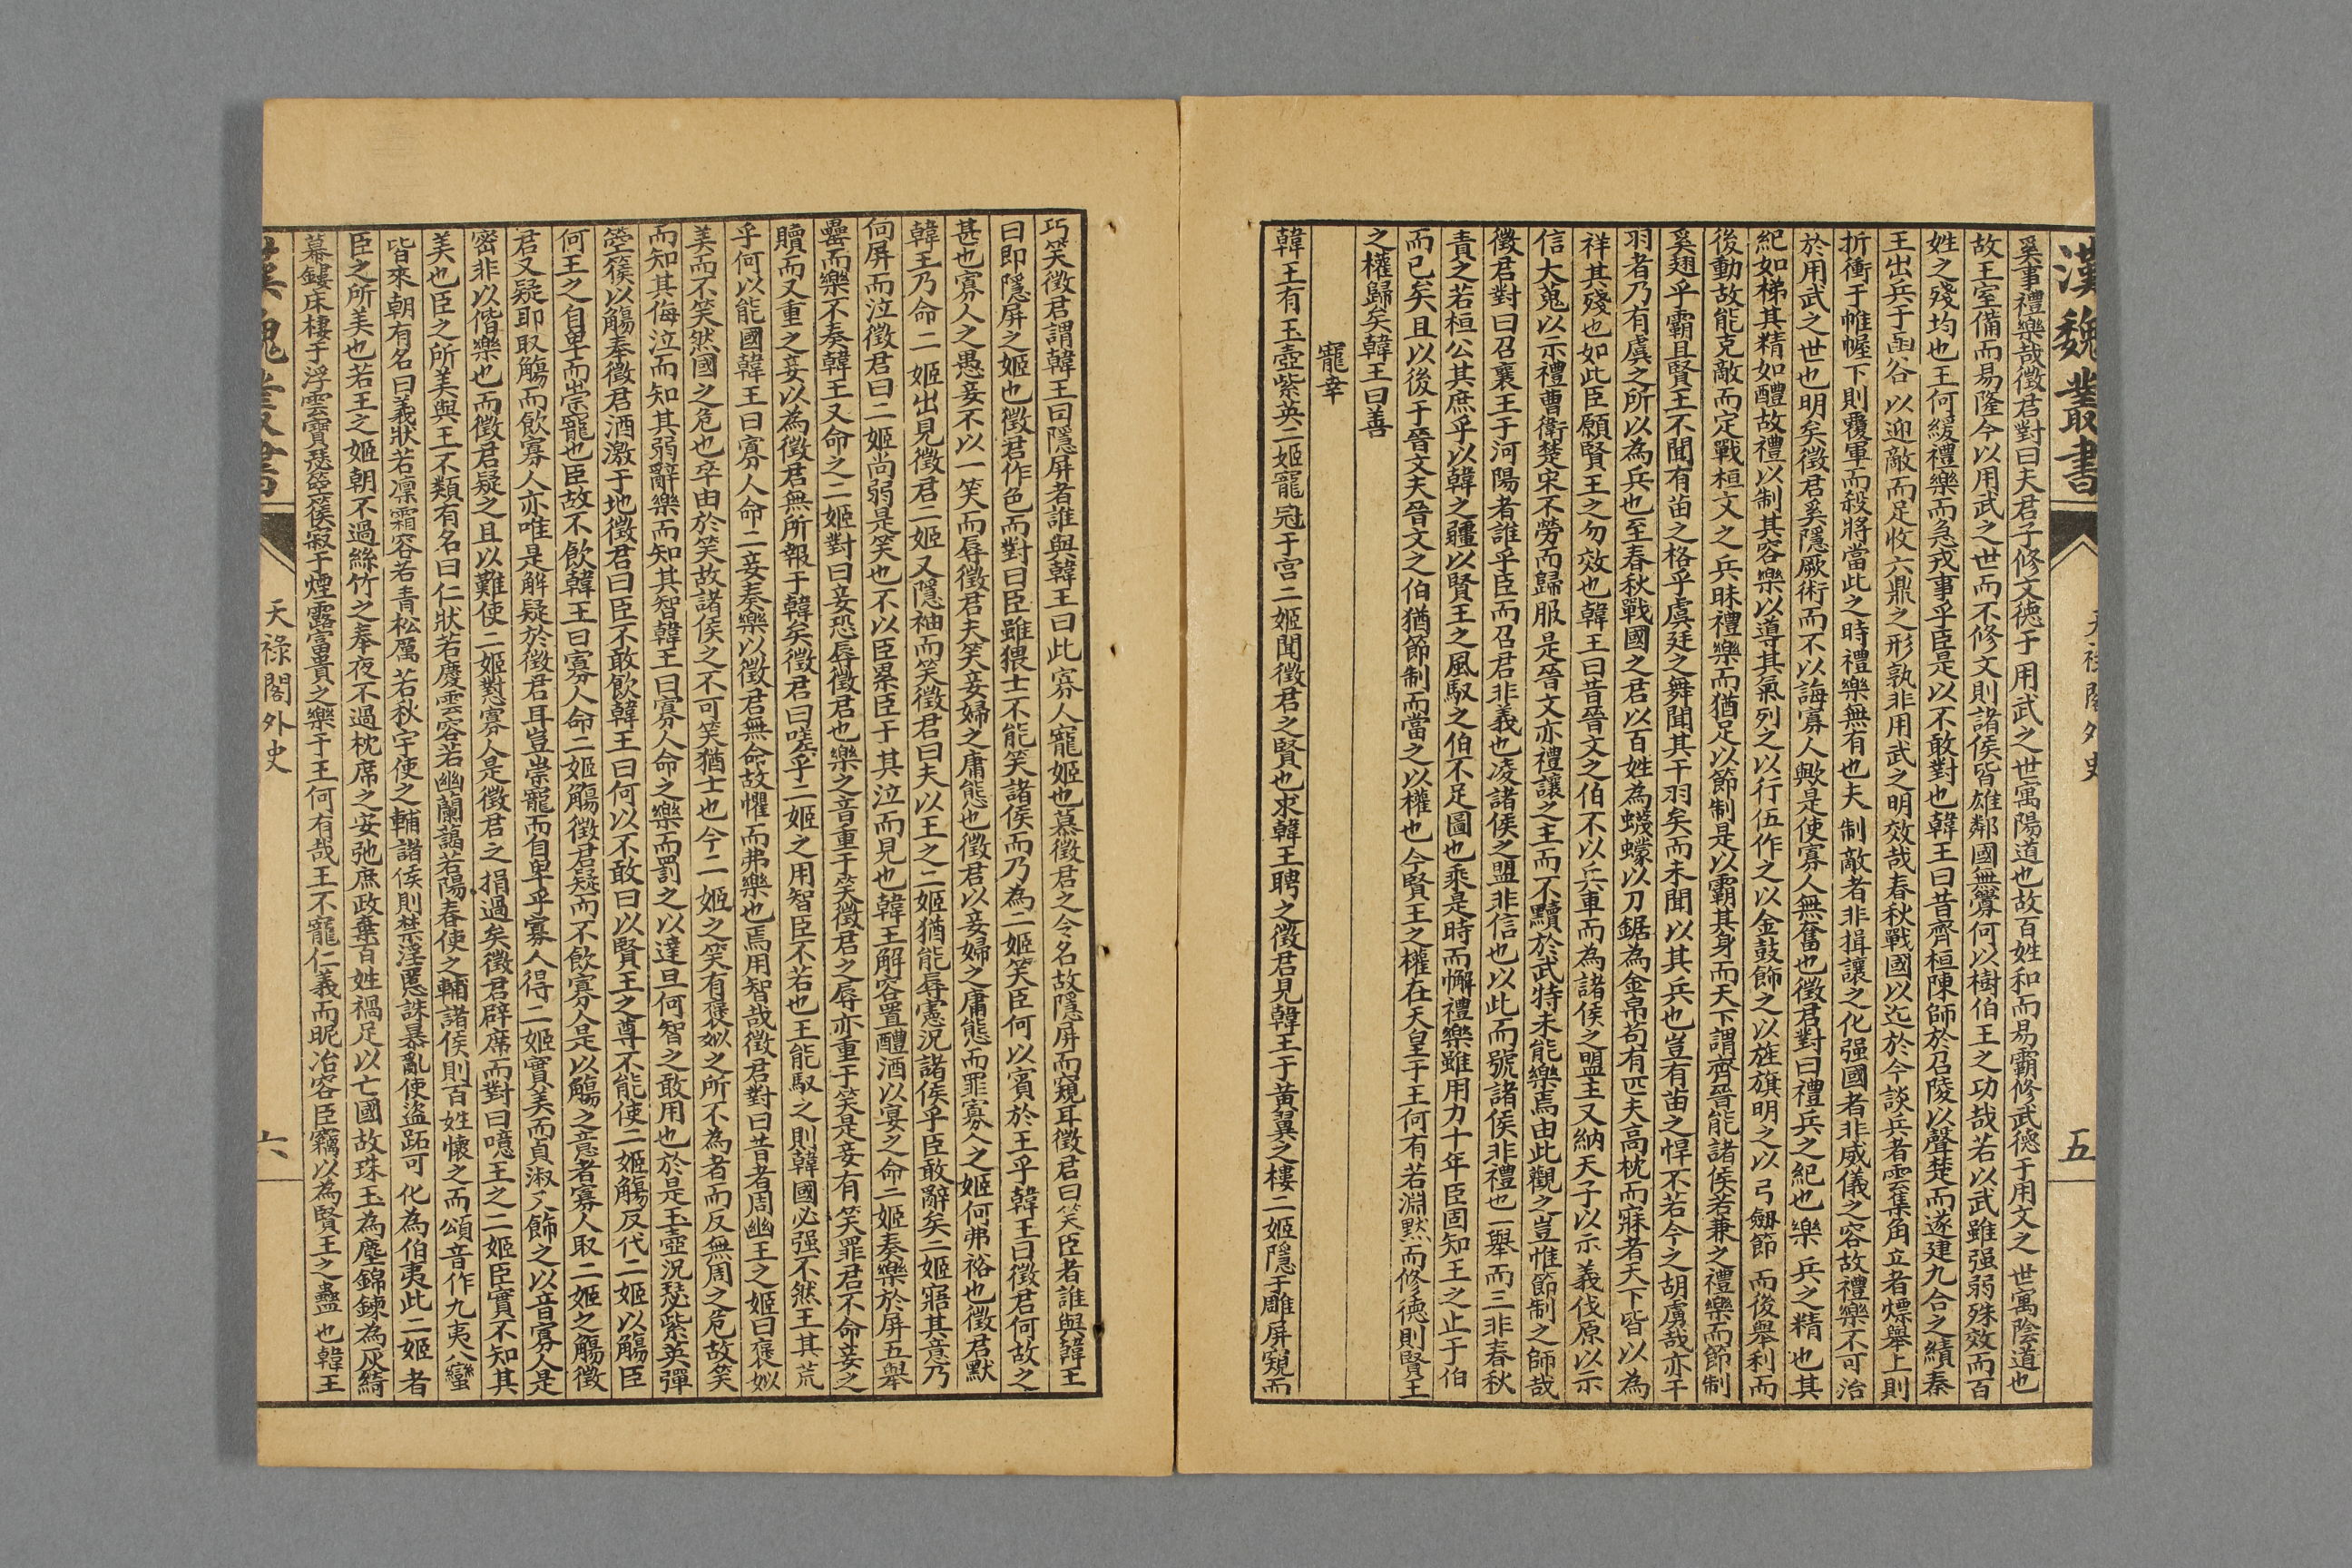 漢魏叢書
天祿閣外史
五
奚事禮樂哉徵君對曰夫君子修文德于用武之世寓陽道也故百姓和而易霸修武德于用文之世寓陰道也
故王室備而易隆今以用武之世而不修文則諸侯皆雄鄰國無釁何以樹伯王之功哉若以武雖强弱殊效而百
姓之殘均也王何緩禮樂而急戎事乎臣是以不敢對也韓王曰昔齊桓陳師於召陵以聲楚而遂建九合之績秦
王出兵于函谷以迎敵而足收六鼎之形孰非用武之明效哉春秋戰國以迄於今談兵者雲集角立者熛舉上則
折衝于帷幄下則覆軍而殺將當此之時禮樂無有也夫制敵者非揖讓之化强國者非威儀之容故禮樂不可治
於用武之世也明矣徵君奚隱厥術而不以誨寡人歟是使寡人無奮也徵君對曰禮兵之紀也樂兵之精也其
紀如梯其精如醴故禮以制其容樂以導其氣列之以行伍作之以金鼓飾之以旌旗明之以弓劔節而後舉利而
後動故能克敵而定戰桓文之兵昧禮樂而猶足以節制是以霸其身而天下謂齊晉能諸侯若兼之禮樂而節制
奚翅乎霸且賢王不聞有苗之格乎虞廷之舞聞其干羽矣而未聞以其兵也豈有苗之悍不若今之胡虜哉亦干
羽者乃有虞之所以為兵也至春秋戰國之君以百姓為蠛蠓以刀鋸為金帛苟有匹夫高枕而寐者天下皆以為
祥其殘也如此臣願賢王之勿效也韓王曰昔晉文之伯不以兵車而為諸侯之盟主又納天子以示義伐原以示
信大蒐以示禮曹衛楚宋不勞而歸服是晉文亦禮讓之主而不黷於武特未能樂焉由此觀之豈惟節制之師哉
徵君對曰召襄王于河陽者誰乎臣而召君非義也凌諸侯之盟非信也以此而號諸侯非禮也一舉而三非春秋
責之若桓公其庶乎以韓之疆以賢王之風馭之伯不足圖也乘是時而懈禮樂雖用力十年臣固知王之止于伯
而已矣且以後于晉文夫晉文之伯猶節制而當之以權也今賢王之權在天皇于王何有若淵默而修德則賢王
之權歸矣韓王曰善
寵幸
韓王有玉壺紫英二姬寵冠于宮二姬聞徵君之賢也求韓王聘之徵君見韓王于黃翼之樓二姬隱于雕屏窺而
巧笑徵君謂韓王曰隱屏者誰與韓王曰此寡人寵姬也慕徵君之令名故隱屏而窺耳徵君曰笑臣者誰與韓王
曰即隱屏之姬也徵君作色而對曰臣雖猥士不能笑諸侯而乃為二姬笑臣何以賓於王乎韓王曰徵君何故之
甚也寡人之愚妾不以一笑而辱徵君夫笑妾婦之庸態也徵君以妾婦之庸態而罪寡人之姬何弗裕也徵君默
韓王乃命二姬出見徵君二姬又隱袖而笑徵君曰夫以王之二姬猶能辱憲況諸侯乎臣敢辭矣二姬寤其意乃
向屏而泣徵君曰二姬尚弱是笑也不以臣累臣于其泣而見也韓王解容置醴酒以宴之命二姬奏樂於屏五舉
罍而樂不奏韓王又命之二姬對曰妾恐辱徵君也樂之音重于笑徵君之辱亦重于笑是妾有笑罪君不命妾之
贖而又重之妾以為徵君無所報于韓矣徵君曰嗟乎二姬之用智臣不若也王能馭之則韓國必强不然王其荒
乎何以能國韓王曰寡人命二妾奏樂以徵君無命故懼而弗樂也焉用智哉徵君對曰昔者周幽王之姬曰褒姒
美而不笑然國之危也卒由於笑故諸侯之不可笑猶士也今二姬之笑有褒姒之所不為者而反無周之危故笑
而知其侮泣而知其弱辭樂而知其智韓王曰寡人命之樂而罰之以達旦何智之敢用也於是玉壺況瑟紫英彈
箜篌以觴奉徵君酒激于地徵君曰臣不敢飲韓王曰何以不敢曰以賢王之尊不能使二姬觴反代二姬以觴臣
何王之自卑而崇寵也臣故不飲韓王曰寡人命二姬觴徵君疑而不飲寡人是以觴之意者寡人取二姬之觴徵
君又疑耶取觴而飲寡人亦唯是解疑於徵君耳豈崇寵而自卑乎寡人得二姬實美而貞淑又飾之以音寡人是
密非以偕樂也而徵君疑之且以難使二姬懟寡人是徵君之捐過矣徵君辟席而對曰噫王之二姬臣實不知其
美也臣之所美與王不類有名曰仁狀若慶雲容若幽蘭藹若陽春使之輔諸侯則百姓懷之而頌音作九夷八蠻
皆來朝有名曰義狀若凛霜容若青松厲若秋宇使之輔諸侯則禁淫慝誅暴亂使盜跖可化為伯夷此二姬者
臣之所美也若王之姬朝不過絲竹之奉夜不過枕席之安弛庶政棄百姓禍足以亡國故珠玉為塵錦鍊為灰綺
幕鏤床棲于浮雲寶瑟箜篌寂于煙露富貴之樂于王何有哉王不寵仁義而昵冶容臣竊以為賢王之蠱也韓王
漢魏叢書
天祿閣外史
六